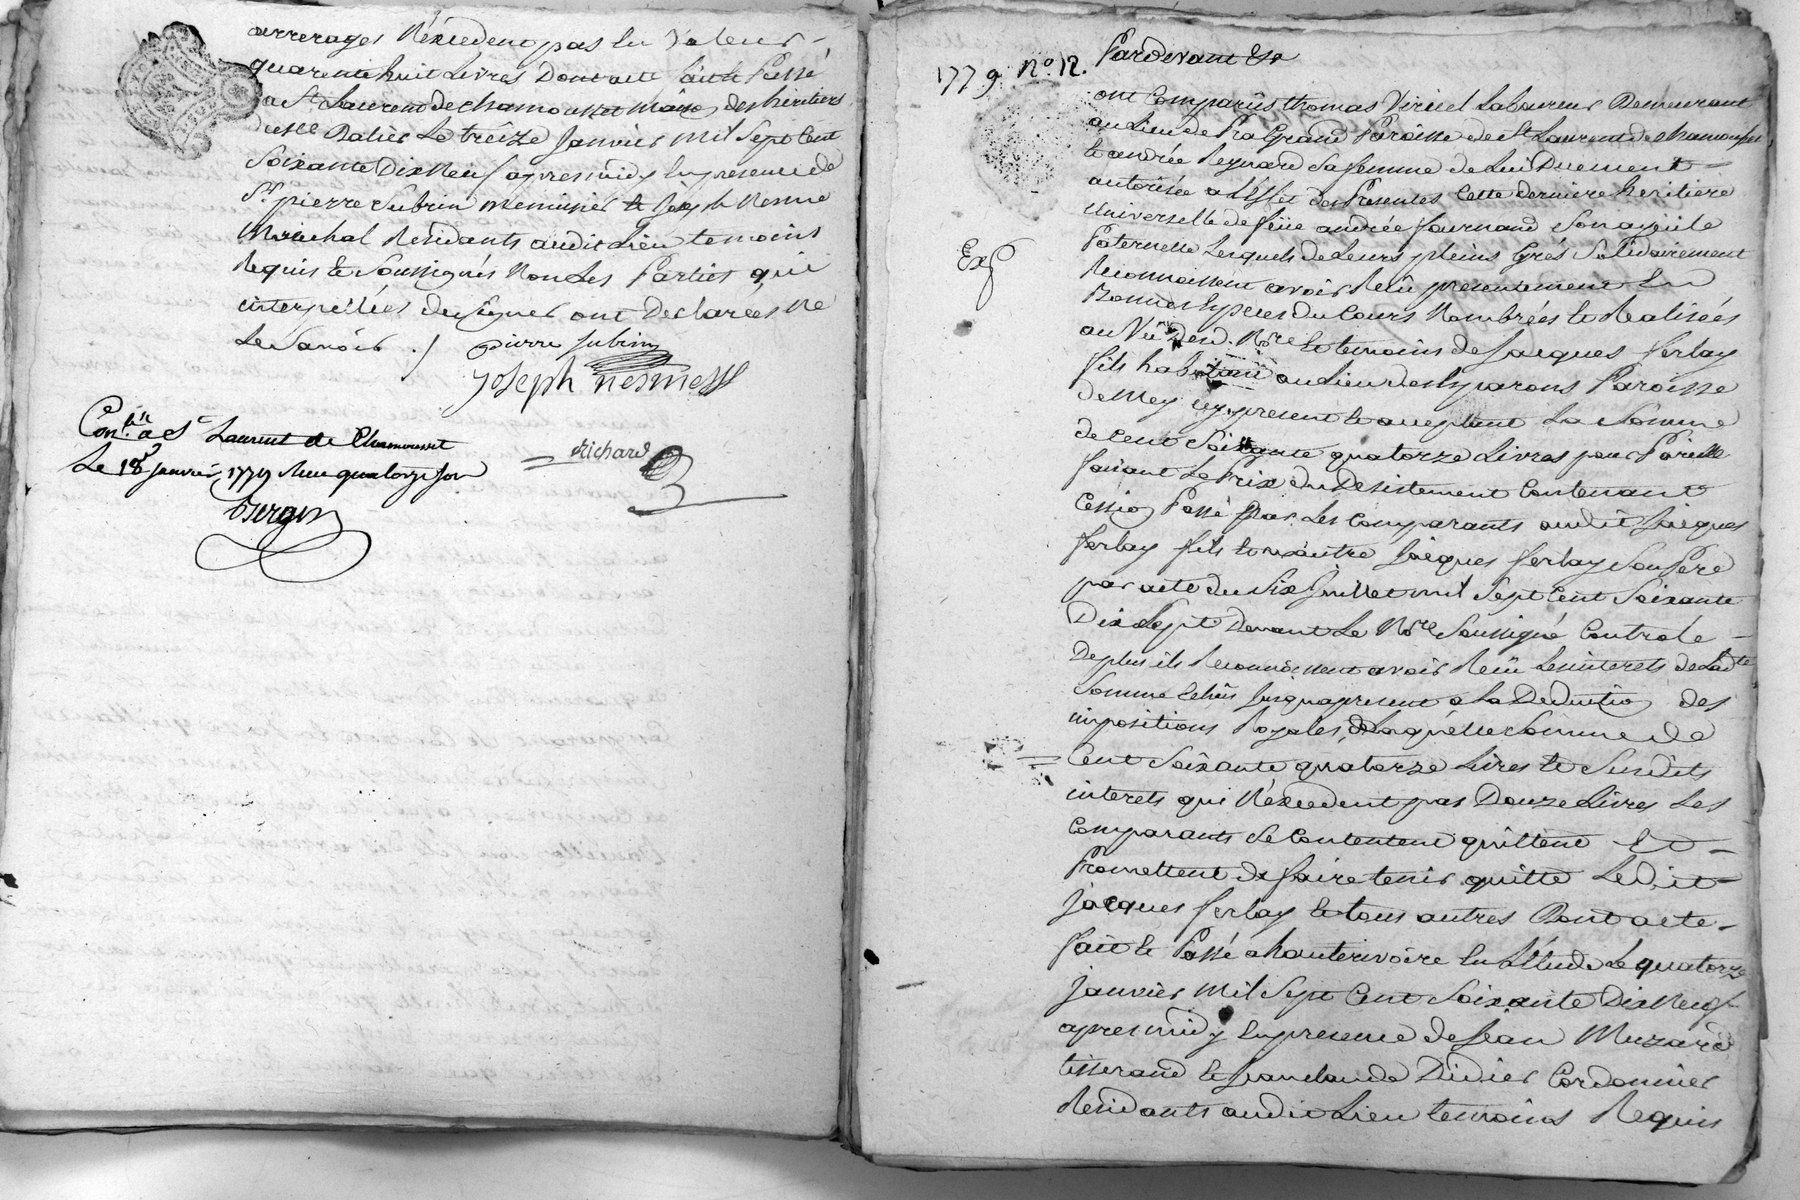 arrerages N'éxcedent pas la valeur
quarente huit Livres Dont acte fait et Passé
a St Laurent de chamousset maison des héritiers
Dalier Le treize Janvier mil Sept Cent
Soixante Dix Neuf apres midy En presence de
Sr pierre Subrin menuisier et Joseph Nesme
Maréchal Residants audit Lieu temoins
Requis et Soussignés Non Les Parties qui
interpellées de Signer ont Declarées Ne
Le Savoir ./.
pierre Subrin
Joseph nesme
Richard
Conlé a St Laurent de Chamousset
Le 18 Janvier 1779 Recu quatorze sou
1779 No. 12.
Pardevant &a
ont Comparûs thomas Viricel Laboureur Demeurant
au Lieu de Pragrand Paroisse de St Laurent de chamousset,
et andrée Reynard Sa femme de Lui Duement
autorisée a L'effet des Presentes Cette derniere héritiere
Universelle de feüe andrée fournand Son ayeule
Paternelle Lesquels de Leurs pleins Grés Solidairement
Reconnoissent avoir Reçû presentement En
Bonnes Especes du Cours Nombrées et Realisées
au Vû desd. Nore et temoins de Jacques ferlay
Exp
fils habitant au Lieu des Esparons Paroisse
de Mey icy present et acceptant La Somme
de Cent Soixante quatorze Livres pour Pareille
faisant Le Prix du Desistement Contenant
Cession Passé Par Les Comparants audit Jacques
ferlay fils et a autre Jacques ferlay Son Pere
par acte du Six Juillet mil Sept Cent Soixante
Dix Sept Devant Le Nore Soussigné Controlé
De plus ils Reconnoissent avoir Reçû Les interets de Ladte
Somme Echûs Jusqu'a present a La Deduction des
impositions Royales, de Laquelle Somme de
Cent Soixante quatorze Livres et Susdits
interets qui N'éxcedent pas Douze Livres Les
Comparants Se Contentent quittent Et
Promettent de faire tenir quitte Ledit
Jacques ferlay et tous autres Dont acte
fait et Passé a hauterivoire En L'Etude Le quatorze
Janvier Mil Sept Cent Soixante Dix Neuf
apres midy En presence de Jean Muzard
tisserand et Jean claude Didier Cordonnier
Residants audit Lieu temoins Requis